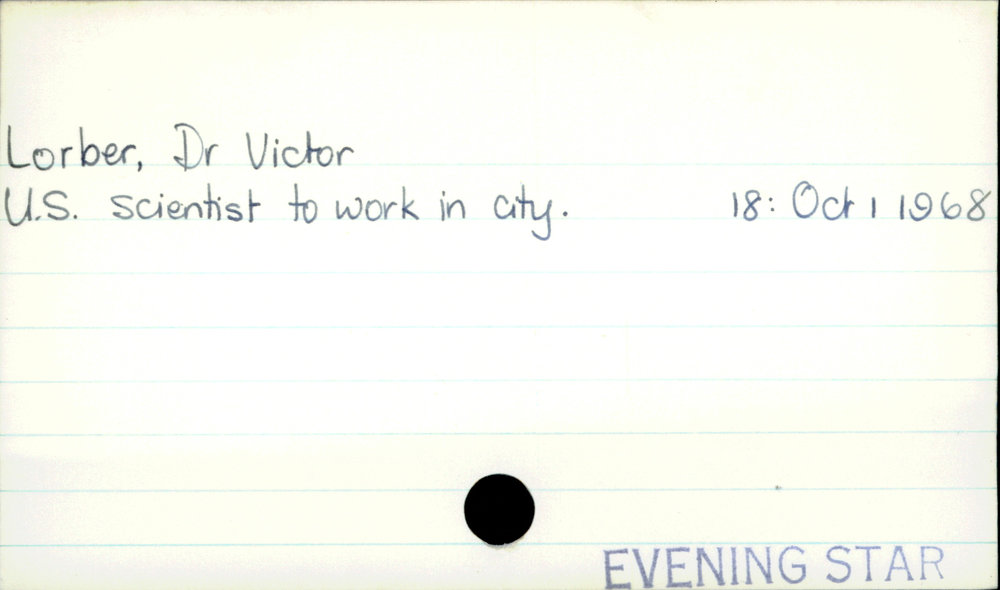 Lorber, Dr Victor
U.S. scientist to work in city. 18: Oct 1 1968
EVENING STAR